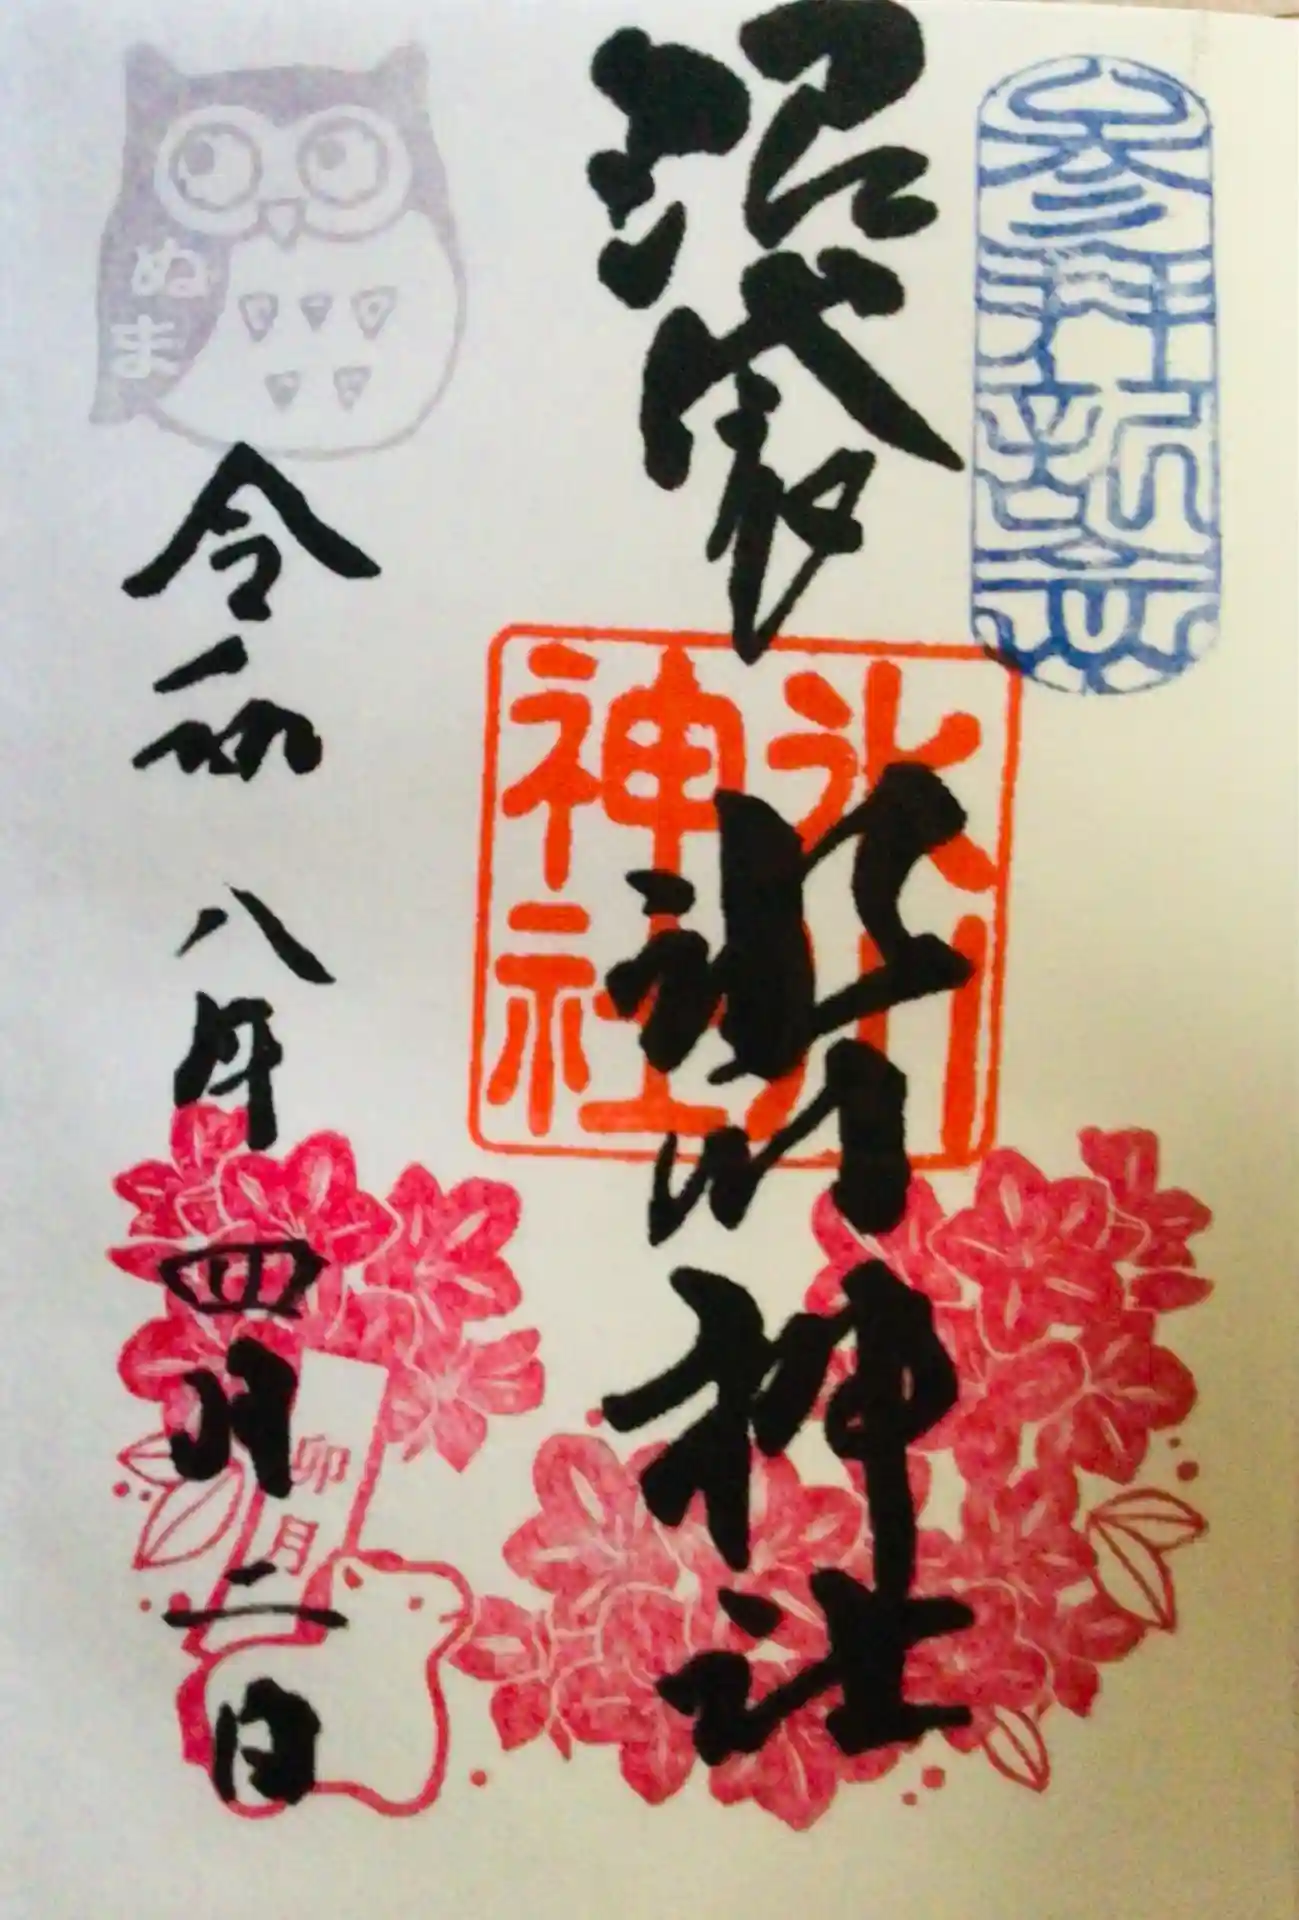 参拝祈念
沼袋
氷川神社
氷川
神社
ぬま
令和八年四月二日
卯月